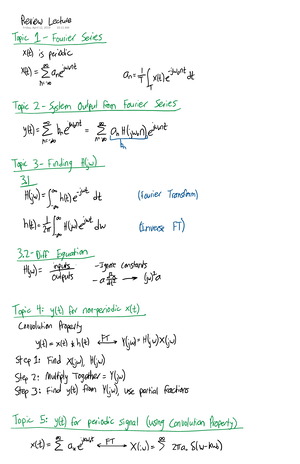 Review Lecture
Topic 1 - Fourier Series
x(t) is periodic
x(t) = ∑_{n=-∞}^{∞} a_n e^{jω₀nt}    a_n = 1/T ∫_T x(t) e^{-jω₀nt} dt
Topic 2 - System Output from Fourier Series
y(t) = ∑_{n=-∞}^{∞} b_n e^{jω₀nt} = ∑_{n=-∞}^{∞} a_n H(jω₀n) e^{jω₀nt}
b_n
Topic 3 - Finding H(jω)
3.1
H(jω) = ∫_{-∞}^{∞} h(t) e^{-jωt} dt    (Fourier Transform)
h(t) = 1/2π ∫_{-∞}^{∞} H(jω) e^{jωt} dω    (Inverse FT)
3.2 - Diff Equation
H(jω) = inputs / outputs    - Ignore constants
- a d²/dt² → (jω)² a
Topic 4: y(t) for non-periodic x(t)
Convolution Property
y(t) = x(t) * h(t) ←FT→ Y(jω) = H(jω)X(jω)
Step 1: Find X(jω), H(jω)
Step 2: Multiply Together = Y(jω)
Step 3: Find y(t) from Y(jω), use partial fractions
Topic 5: y(t) for periodic signal (using Convolution Property)
x(t) = ∑^{∞} a_n e^{jω₀kt} ←FT→ X(jω) = ∑^{∞} 2πa_k δ(ω-kω₀)